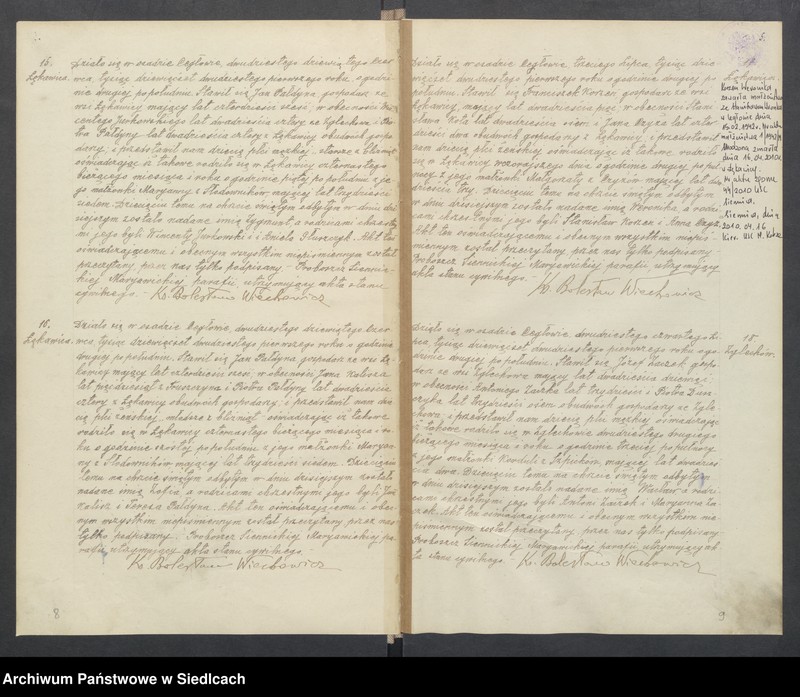 15.
Łękawica.
Działo się w osadzie Cegłowie, dwudziestego dziewiątego czer-
wca, tysiąc dziewięćset dwudziestego pierwszego roku, o godzi-
nie drugiej popołudniu. Stawił się Jan Pałdyna, gospodarz ze
wsi Łękawicy mający lat czterdzieści sześć, w obecności
Jurkowskiego lat dwadzieścia cztery z Żglechowa i Pio-
tra Pałdyny lat dwadzieścia cztery z Łękawicy obudwóch gospo-
darzy, i przedstawił nam dziecię płci męzkiej, starsze z bliźniąt
oświadczając iż takowe rodziło się w Łękawicy czternastego
bieżącego miesiąca i roku o godzinie piątej popołudniu z je-
go małżonki Maryanny z Słodowników mającej lat trzydzieści
siedem. Dziecięciu temu na chrzcie świętym odbytym w dniu dzi-
siejszym zostało nadane imię Zygmunt, a rodzicami chrzestny-
mi jego byli Wincenty Jurkowski i Aniela Akt ten
oświadczającemu i obecnym wszystkim niepiśmiennym został
przeczytany przez nas tylko podpisany. Proboszcz Siennic-
kiej Maryawickiej parafii, utrzymujący akta stanu
cywilnego. Ks. Bolesław Wiechowicz
16.
Łękawica.
Działo się w osadzie Cegłowie, dwudziestego dziewiątego czer-
wca, tysiąc dziewięćset dwudziestego pierwszego roku o godzinie
drugiej popołudniu. Stawił się Jan Pałdyna, gospodarz ze wsi Łę-
kawicy mający lat czterdzieści sześć, w obecności Jana
lat pięćdziesiąt z i Piotra Pałdyny lat dwadzieścia
cztery z Łękawicy obudwóch gospodarzy, i przedstawił nam dzie-
cię płci żeńskiej, młodsze z bliźniąt oświadczając iż takowe
rodziło się w Łękawicy czternastego bieżącego miesiąca i ro-
ku o godzinie szóstej popołudniu z jego małżonki Maryan-
ny z Słodowników mającej lat trzydzieści siedem. Dziecięciu
temu na chrzcie świętym odbytym w dniu dzisiejszym zostało
nadane imię Zofia, a rodzicami chrzestnymi jego byli Jan
i Pałdyna. Akt ten oświadczającemu i obec-
nym wszystkim niepiśmiennym został przeczytany przez nas
tylko podpisany. Proboszcz Siennickiej Maryawickiej pa-
rafii, utrzymujący akta stanu cywilnego.
Ks. Bolesław Wiechowicz
8
Działo się w osadzie Cegłowie, trzeciego lipca, tysiąc dzie-
więćset dwudziestego pierwszego roku o godzinie drugiej po
południu. Stawił się Franciszek Korzeń, gospodarz ze wsi
Łękawicy, mający lat dwadzieścia pięć, w obecności Stani-
sława lat dwadzieścia ośm i Jana lat czter-
dzieści dwa obudwóch gospodarzy z Łękawicy, i przedstawił
nam dziecię płci żeńskiej oświadczając iż takowe urodziło
się w Łękawicy wczorajszego dnia o godzinie drugiej popołu-
dniu, z jego małżonki Małgorzaty z mającej lat dwa-
dzieścia trzy. Dziecięciu temu na chrzcie świętym odbytym
w dniu dzisiejszym zostało nadane imię Weronika a rodzi-
cami chrzestnymi jego byli Stanisław Korzeń i Anna
Akt ten oświadczającemu i obecnym wszystkim niepiś-
miennym został przeczytany, przez nas tylko podpisany.
Proboszcz Siennickiej Maryawickiej parafii, utrzymujący
akta stanu cywilnego.
Ks. Bolesław Wiechowicz
17
Łękawica
Korzeń Weronika
zawarła małżeństwo
w Cegłowie dnia
15.02.1942r. Nr aktu
małżeństwa
zmarła
dnia 16.04.2010r.
Nr aktu zgonu
44/2010 USC
Siennica.
Siennica, dnia
2010.04.16
Kier. USC
Działo się w osadzie Cegłowie, dwudziestego czwartego li-
pca, tysiąc dziewięćset dwudziestego pierwszego roku o go-
dzinie drugiej popołudniu. Stawił się Józef Zaczek gospo-
darz ze wsi Żglechowa mający lat dwadzieścia dziewięć
w obecności Antoniego Zaczka lat trzydzieści i Piotra
lat trzydzieści ośm obudwóch gospodarzy ze Żgle-
chowa, i przedstawił nam dziecię płci męzkiej oświadczając
iż takowe urodziło się w Żglechowie dwudziestego drugiego
bieżącego miesiąca i roku o godzinie trzeciej popołudniu
z jego małżonki Korduli z mającej lat dwadzieś-
cia dwa. Dziecięciu temu na chrzcie świętym odbytym
w dniu dzisiejszym zostało nadane imię Wacław a rodzi-
cami chrzestnymi jego byli Antoni Zaczek i Maryanna Za-
czek. Akt ten oświadczającemu i obecnym wszystkim nie-
piśmiennym został przeczytany, przez nas tylko podpisany.
Proboszcz Siennickiej Maryawickiej parafii, utrzymujący ak-
ta stanu cywilnego. Ks. Bolesław Wiechowicz
18
Żglechów.
9
Archiwum Państwowe w Siedlcach